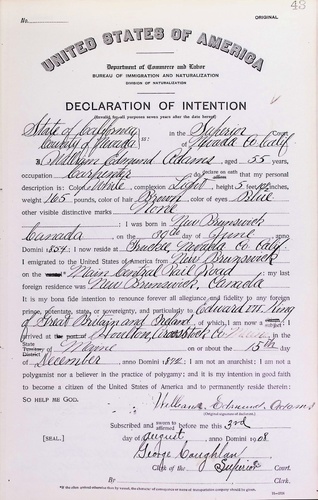 43
No.
ORIGINAL
UNITED STATES OF AMERICA
Department of Commerce and Labor
BUREAU OF IMMIGRATION AND NATURALIZATION
DIVISION OF NATURALIZATION
DECLARATION OF INTENTION
(Invalid for all purposes seven years after the date hereof)
State of California
County of Nevada ss: In the Superior Court
of Nevada Co Calif
I, William Edmund Adams, aged 55 years,
occupation Carpenter, do declare on oath affirm that my personal
description is: Color White, complexion Light, height 5 feet inches,
weight 165 pounds, color of hair Brown, color of eyes Blue
other visible distinctive marks None
I was born in New Brunswick
Canada on the day of June, anno
Domini 1854; I now reside at Truckee Nevada Co Calif.
I emigrated to the United States of America from New Brunswick
on the vessel Main Central Rail Road; my last
foreign residence was New Brunswick, Canada
It is my bona fide intention to renounce forever all allegiance and fidelity to any foreign
prince, potentate, state, or sovereignty, and particularly to Edward VII King
of Great Britain and Ireland, of which I am now a subject; I
arrived at the port of Houlton, Co in the
State Territory District of Maine on or about the 15th day
of December, anno Domini; I am not an anarchist; I am not a
polygamist nor a believer in the practice of polygamy; and it is my intention in good faith
to become a citizen of the United States of America and to permanently reside therein:
SO HELP ME GOD.
William Edmund Adams
(Original signature of declarant.)
Subscribed and sworn to affirmed before me this 3rd
[SEAL.] day of August, anno Domini 1908
George Coughlan
Clerk of the Superior Court.
By, Clerk.